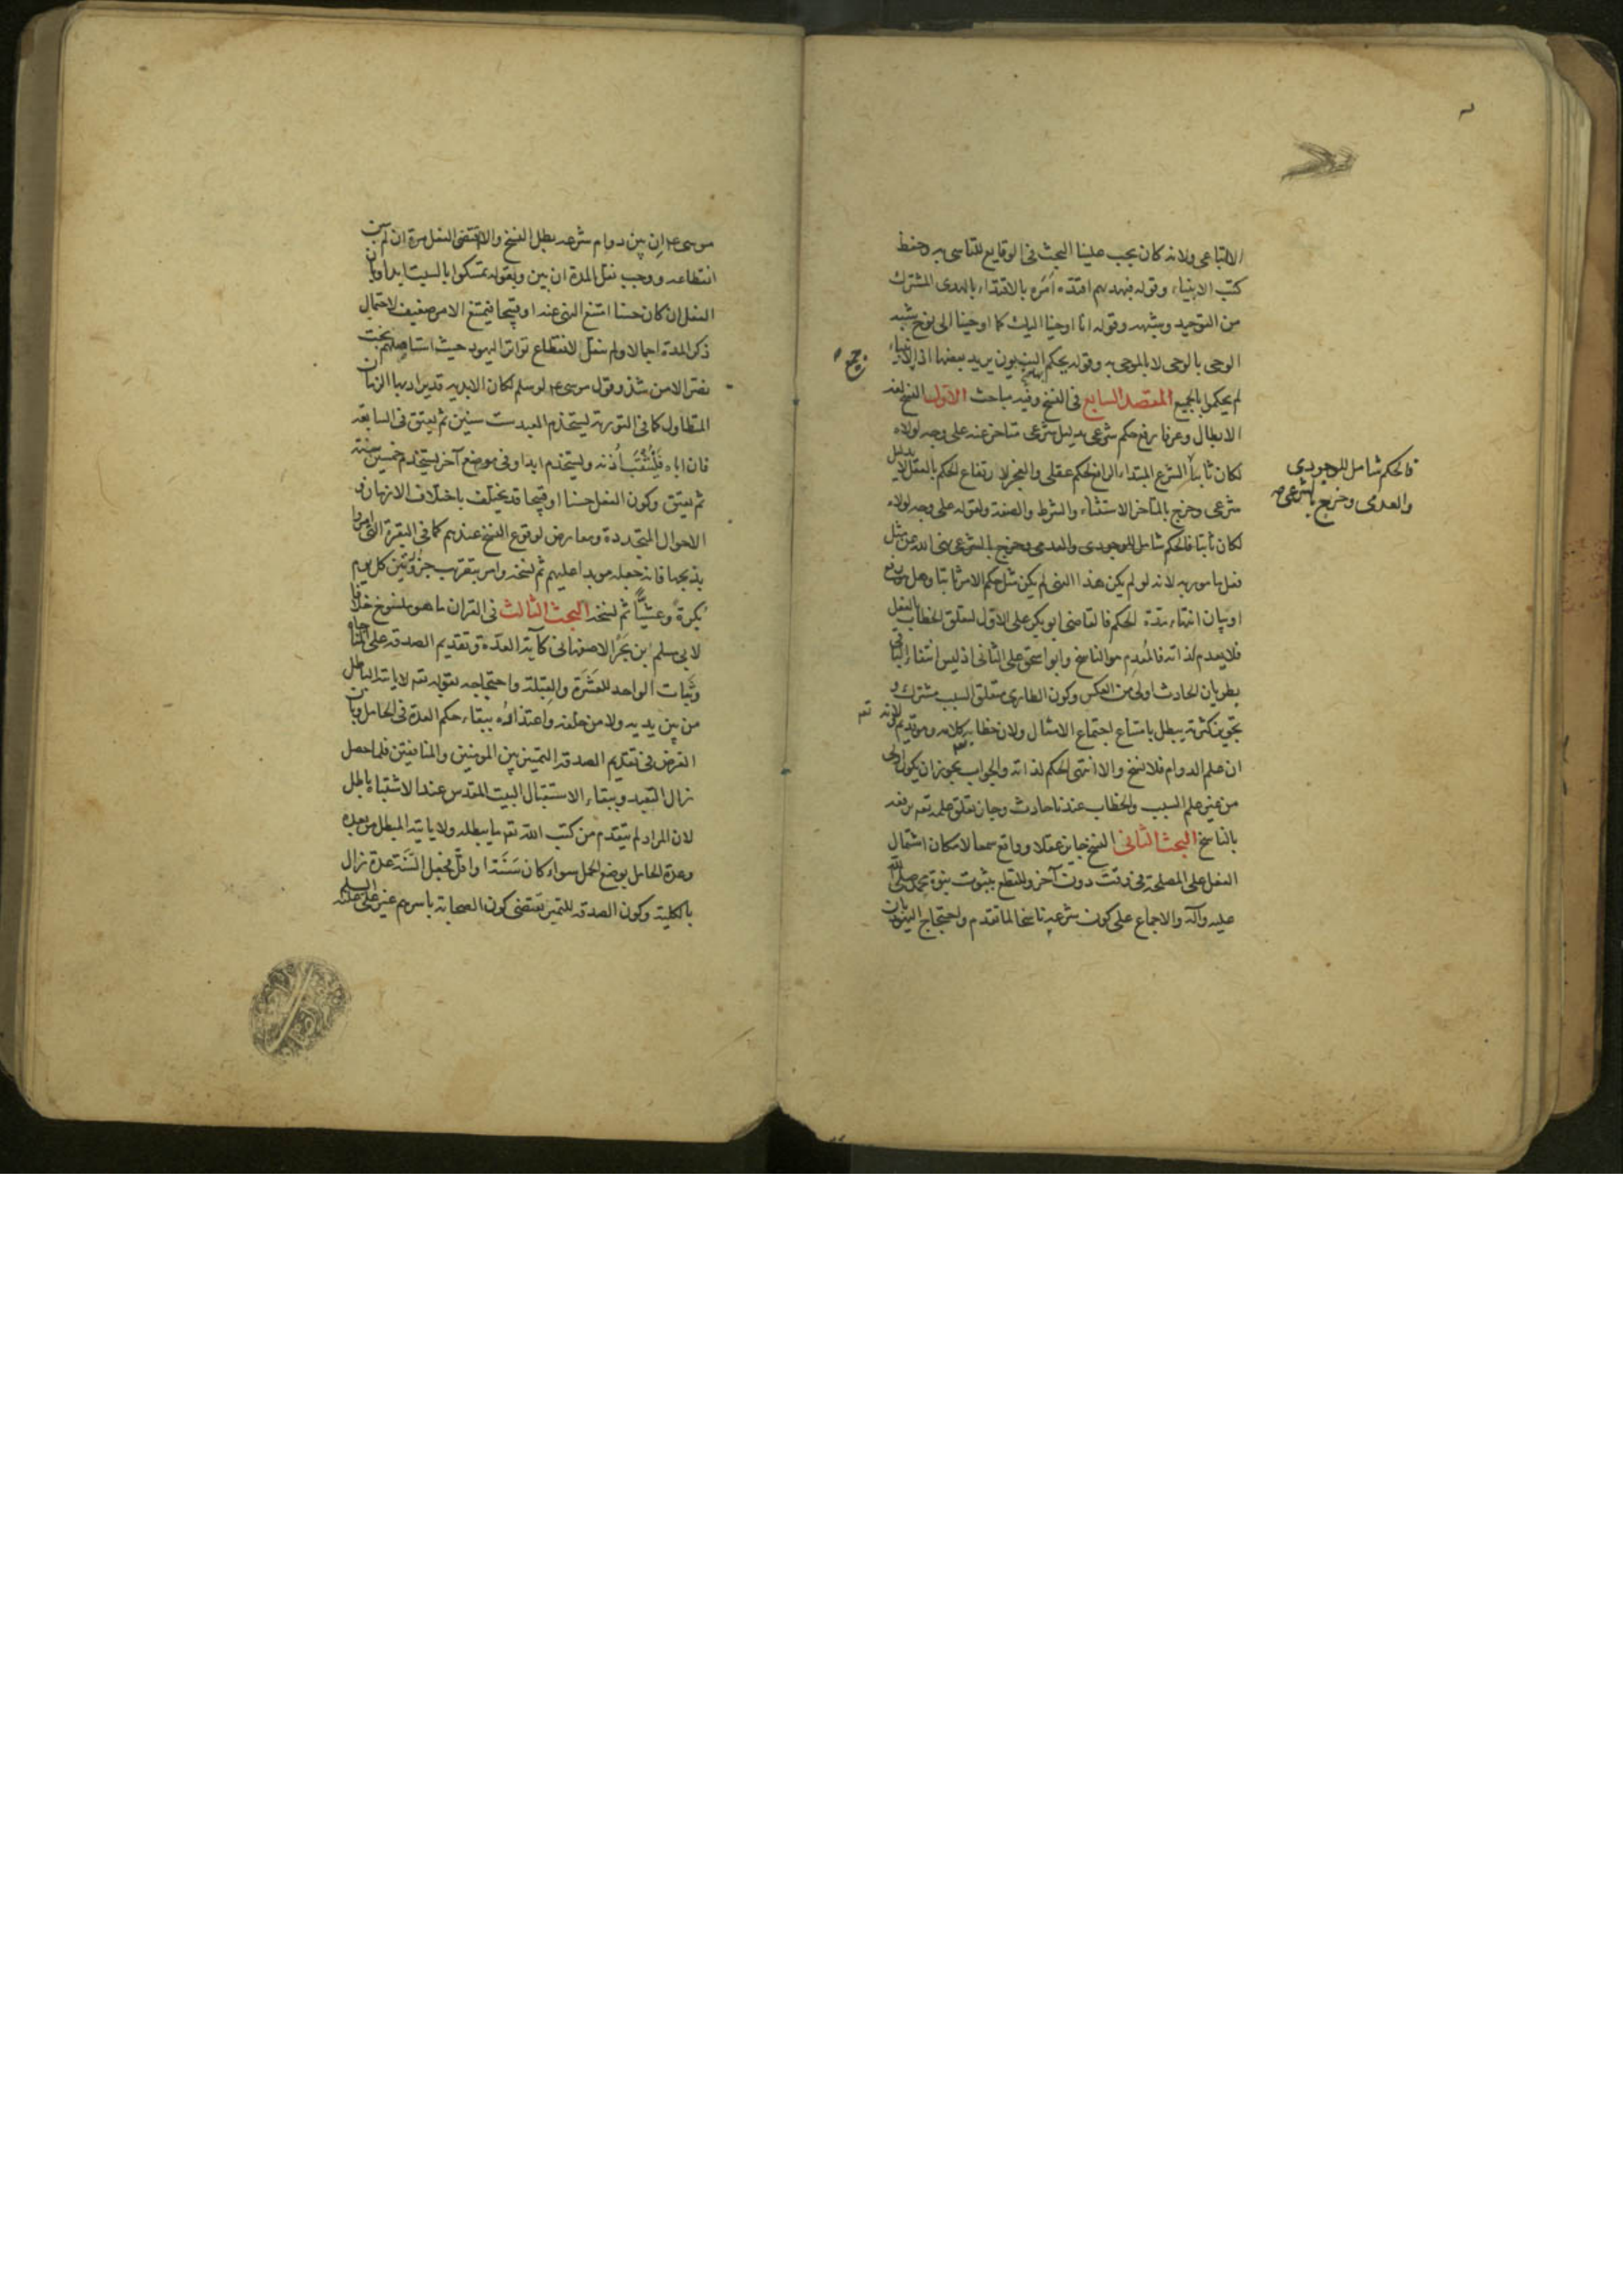 الاتباعى ولانه كان يجب علينا البحث فى الوقايع للتاسى به وحفظ
كتب الانبياء وقوله فبهديهم اقتده اَمَره بالاقتداء بالهدى المشترك
من التوحيد وشبهه وقوله انا اوحينا اليك كما اوحينا الى نوح شبه
الوحى بالوحى لا الموحى به وقوله يحكم بها النبيون يريد بعضها اذ الانبياء
لم يحكموا بالجميع المقصد السابع فى النسخ وفيه مباحث الاول النسخ لغة
الابطال وعرفا رفع حكم شرعى بدليل شرعى متاخر عنه على وجه لولاه
لكان ثابتا الشرع المبتداء الرافع لحكم عقلى والعجز لارتفاع الحكم بالعقل لا بدليل
شرعى وخرج بالمتاخر الاستثناء والشرط والصفة ولقوله على وجه لولاه
لكان ثابتا فالحكم شامل للوجودى والعدمى وخرج بالشرعى نهى الله عن مثل
فعل مامور به لانه لو لم يكن هذا النهى لم يكن مثل حكم الامر ثابتا وهل هو رفع
او بيان انتهاء مدة الحكم فالقاضى ابو بكر على الاول لتعلق الخطاب بالفعل
فلا يعدم لذاته فالمُعدِم هو الناسخ وابو اسحق على الثانى اذ ليس انتفاء الباقى
بطريان الحادث اولى من العكس وكون الطارى متعلق السبب مشترك و
تجويز كثرته يبطل بامتناع اجتماع الامثال ولان خطابه كلامه وهو قديم ولانه تعـ
ان علم الدوام فلا نسخ والا انتهى الحكم لذاته والجواب يجوز ان يكون اولى
من غير علم السبب والخطاب عندنا حادث وجاز تعلق علمه تعـ برفعه
بالناسخ البحث الثانى النسخ جايز عقلا وواقع سمعا لامكان اشتمال
الفعل على المصلحة فى وقت دون آخر وللقطع بثبوت نبوة محمد صلى الله
عليه وآله والاجماع على كون شرعه ناسخا لما تقدم واحتجاج اليهود بان
فالحكم شامل للوجودى
والعدمى وخرج بالشرعى
موسى ان بين دوام شرعه بطل النسخ والا اقتضى الفعل مرة ان لم يبين
انقطاعه ووجب نقل المدة ان بين وبقوله تمسكوا بالسبت ابدا وبان
الفعل ان كان حسنا امتنع النهى عنه او قبيحا فيمتنع الامر ضعيف لاحتمال
ذكر المدة اجمالا ولم ينقل لانقطاع تواتر اليهود حيث استاصلهم بخت
نصر الا من شذ وقول موسى لو سلم لكان الابديه قد يراد بها الزمان
المتطاول كما فى التورية يستخدم العبد ست سنين ثم يعتق فى السابعة
فان اباه فَلْيُثْقَب اُذنه ويستخدم ابدا وفى موضع آخر يستخدم خمسين سنة
ثم يعتق وكون الفعل حسنا او قبيحا قد يختلف باختلاف الازمان و
الاحوال المتجددة ومعارض لوقوع النسخ عندهم كما فى البقرة التى امروا
بذبحها فانه جعله موبدا عليهم ثم نسخه وامر بتقريب جزوتين كل يوم
بُكرةً وعشيًّا ثم نسخه البحث الثالث فى القران ما هو منسوخ خلافا
لابى مسلم بن بحر الاصفهانى كآية العدّة وتقديم الصدقة على المناجاة
وثَبات الواحد للعَشَرَة والقبلة واحتجاجه بقوله تعـ لا ياتيه الباطل
من بين يديه ولا من خلفه واعتذاره ببقاء حكم العدة فى الحامل وبان
الغرض فى تقديم الصدقة التمييز بين المومنين والمنافقين فلما حصل
زال التعبد وببقاء الاستقبال البيت المقدس عند الاشتباه باطل
لان المراد لم يتقدم من كتب الله تعـ ما يبطله ولا ياتيه المبطل من بعده
وعدة الحامل بوضع الحمل سواء كان سَنَة او اقل فجعل السَّنَة عدة زال
بالكلية وكون الصدقة للتميز يقتضى كون الصحابة باسرهم غير على عليه السلم